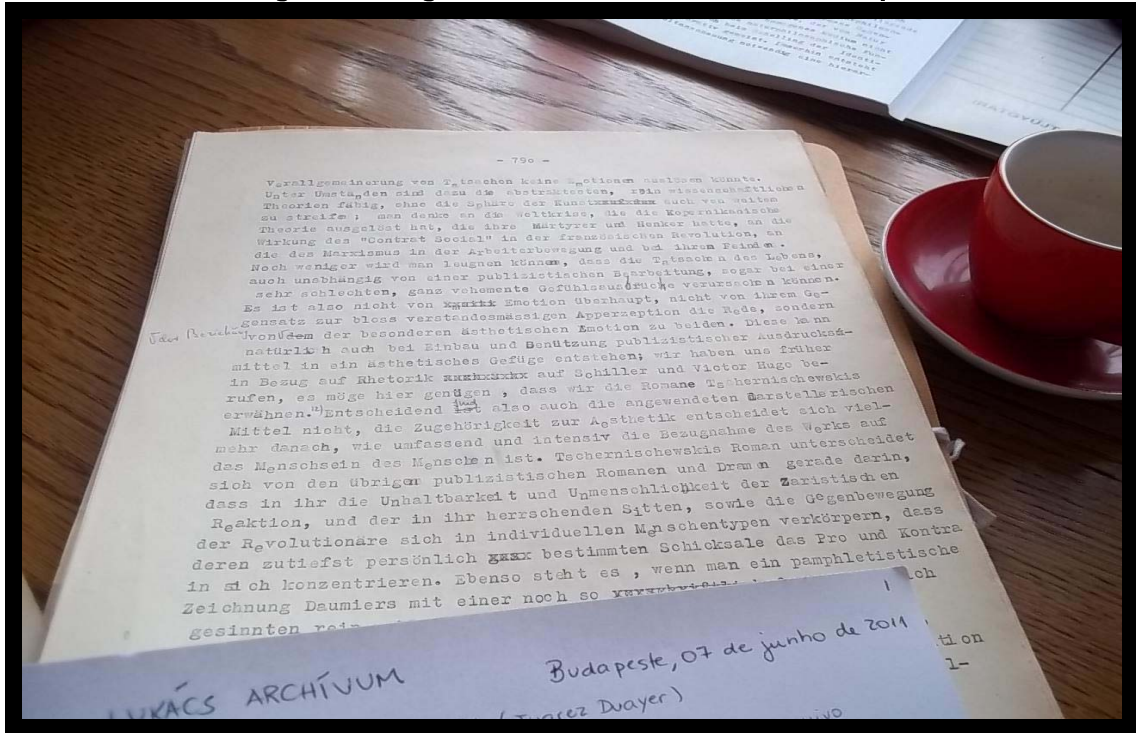 - 790 -
Verallgemeinerung von Tatsachen keine Emotionen auslösen könnte.
Unter Umständen sind dazu die abstraktesten, rein wissenschaftlichen
Theorien fähig, ohne die Sphäre der Kunst auch von weitem
zu streifen; man denke an die Weltkrise, die die Kopernikanische
Theorie ausgelöst hat, die ihre Märtyrer und Henker hatte, an die
Wirkung des "Contrat Social" in der französischen Revolution, an
die des Marxismus in der Arbeiterbewegung und bei ihren Feinden.
Noch weniger wird man leugnen können, dass die Tatsachen des Lebens,
auch unabhängig von einer publizistischen Bearbeitung, sogar bei einer
sehr schlechten, ganz vehemente Gefühlsausdrücke verursachen können.
Es ist also nicht von Emotion überhaupt, nicht von ihrem Ge-
gensatz zur bloss verstandesmässigen Apperzeption die Rede, sondern
von dem der besonderen ästhetischen Emotion zu beiden. Diese kann
natürlich auch bei Einbau und Benützung publizistischer Ausdrucks-
mittel in ein ästhetisches Gefüge entstehen; wir haben uns früher
in Bezug auf Rhetorik auf Schiller und Victor Hugo be-
rufen, es möge hier genügen , dass wir die Romane Tschernischewskis
erwähnen.12) Entscheidend ist also auch die angewendeten darstellerischen
Mittel nicht, die Zugehörigkeit zur Aesthetik entscheidet sich viel-
mehr danach, wie umfassend und intensiv die Bezugnahme des Werks auf
das Menschsein des Menschen ist. Tschernischewskis Roman unterscheidet
sich von den übrigen publizistischen Romanen und Dramen gerade darin,
dass in ihr die Unhaltbarkeit und Unmenschlichkeit der Zaristischen
Reaktion, und der in ihr herrschenden Sitten, sowie die Gegenbewegung
der Revolutionäre sich in individuellen Menschentypen verkörpern, dass
deren zutiefst persönlich bestimmten Schicksale das Pro und Kontra
in sich konzentrieren. Ebenso steht es , wenn man ein pamphletistische
Zeichnung Daumiers mit einer noch so
gesinnten rein
LUKÁCS ARCHÍVUM
Budapeste, 07 de junho de 2011
(Juarez Duayer)